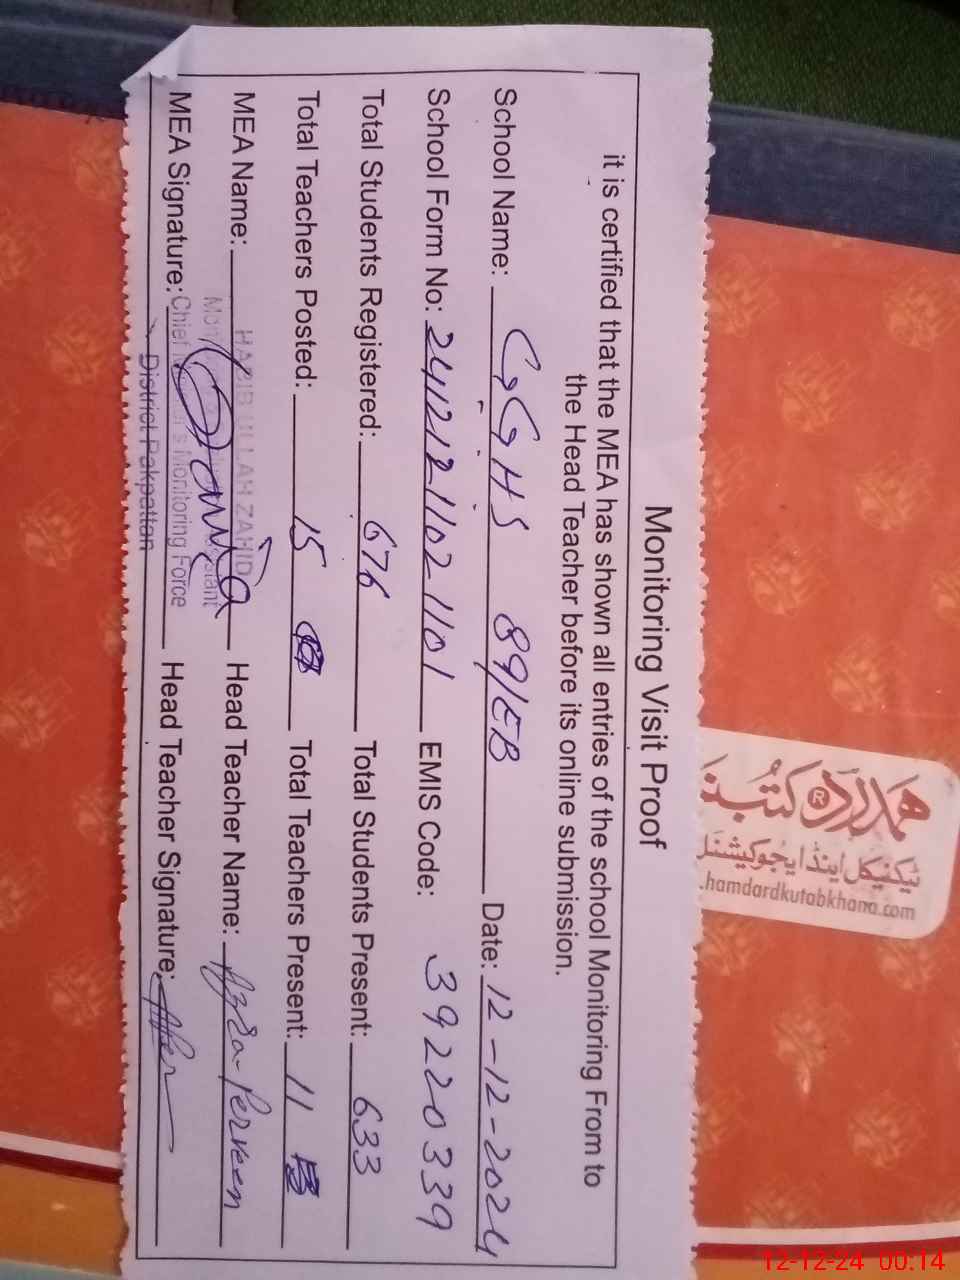 Monitoring Visit Proof
it is certified that the MEA has shown all entries of the school Monitoring From to
the Head Teacher before its online submission.
School Name: GGHS 89/EB Date: 12-12-2024
School Form No: 24121211021101 EMIS Code: 39220339
Total Students Registered: 676 Total Students Present: 633
Total Teachers Posted: 15 Total Teachers Present: 11
MEA Name: HABIB ULLAH ZAHID Head Teacher Name: Azra Perveen
MEA Signature: Head Teacher Signature:
Chief Monitoring Force
District Pakpattan
ہمدرد کتب
ٹیکنیکل اینڈ ایجوکیشنل
.hamdardkutabkhana.com
12-12-24 00:14